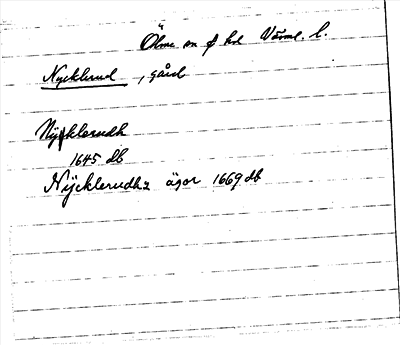 Ölme sn f hd Värml. l.
Nycklerud, gård
Nycklerudh
1645 db
Nÿcklerudhz ägor 1669 db